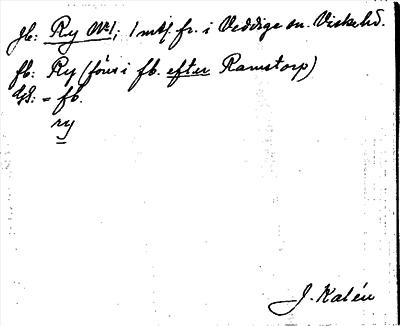 jb: Ry Nr 1; 1 mtl. fr. i Veddige sn. Viske hd.
fb: Ry (föres i fb. efter Ramstorp)
Gs: = fb.
ry
J. Kalén